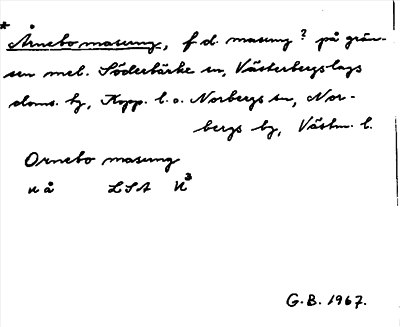 * Årnebo masung, f d. masung? på grän-
sen mel. Söderbärke sn, Västerbergslags
doms. hg, Kopp. l. o. Norbergs sn, Nor-
bergs hg, Västm. l.
Ornebo masung
n å LSA N³
G.B. 1967.